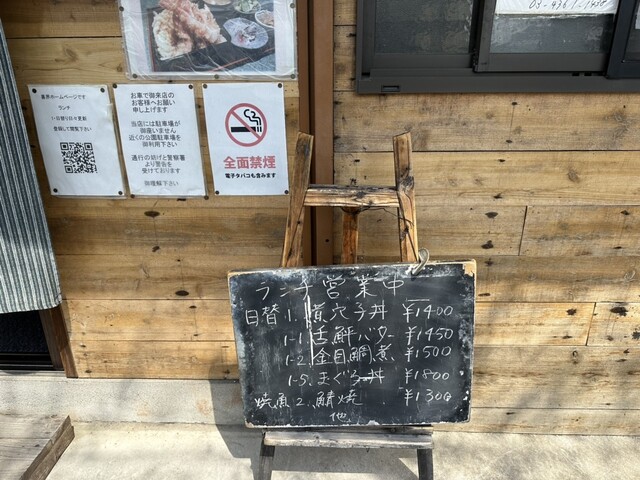 最所ホームページです
ランチ
日替り日々更新
登録して閲覧下さい
お車で御来店の
お客様へお願い
申し上げます!
当店には駐車場が
御座いません
近くの公園駐車場を
御利用下さい
通行の妨げと警察署
より警告を
受けております
御理解下さい
全面禁煙
電子タバコも含みます
ランチ営業中
日替 1. 煮穴子丼 ¥1400
1-1. 舌鮃バター ¥1450
1-2. 金目鯛煮 ¥1500
1-5. まぐろ丼 ¥1800
焼魚 2. 鯖焼 ¥1300
他